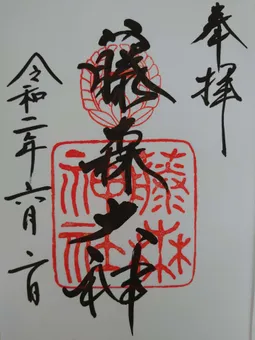 奉拝
藤森大神
藤森
神社
令和二年六月一日